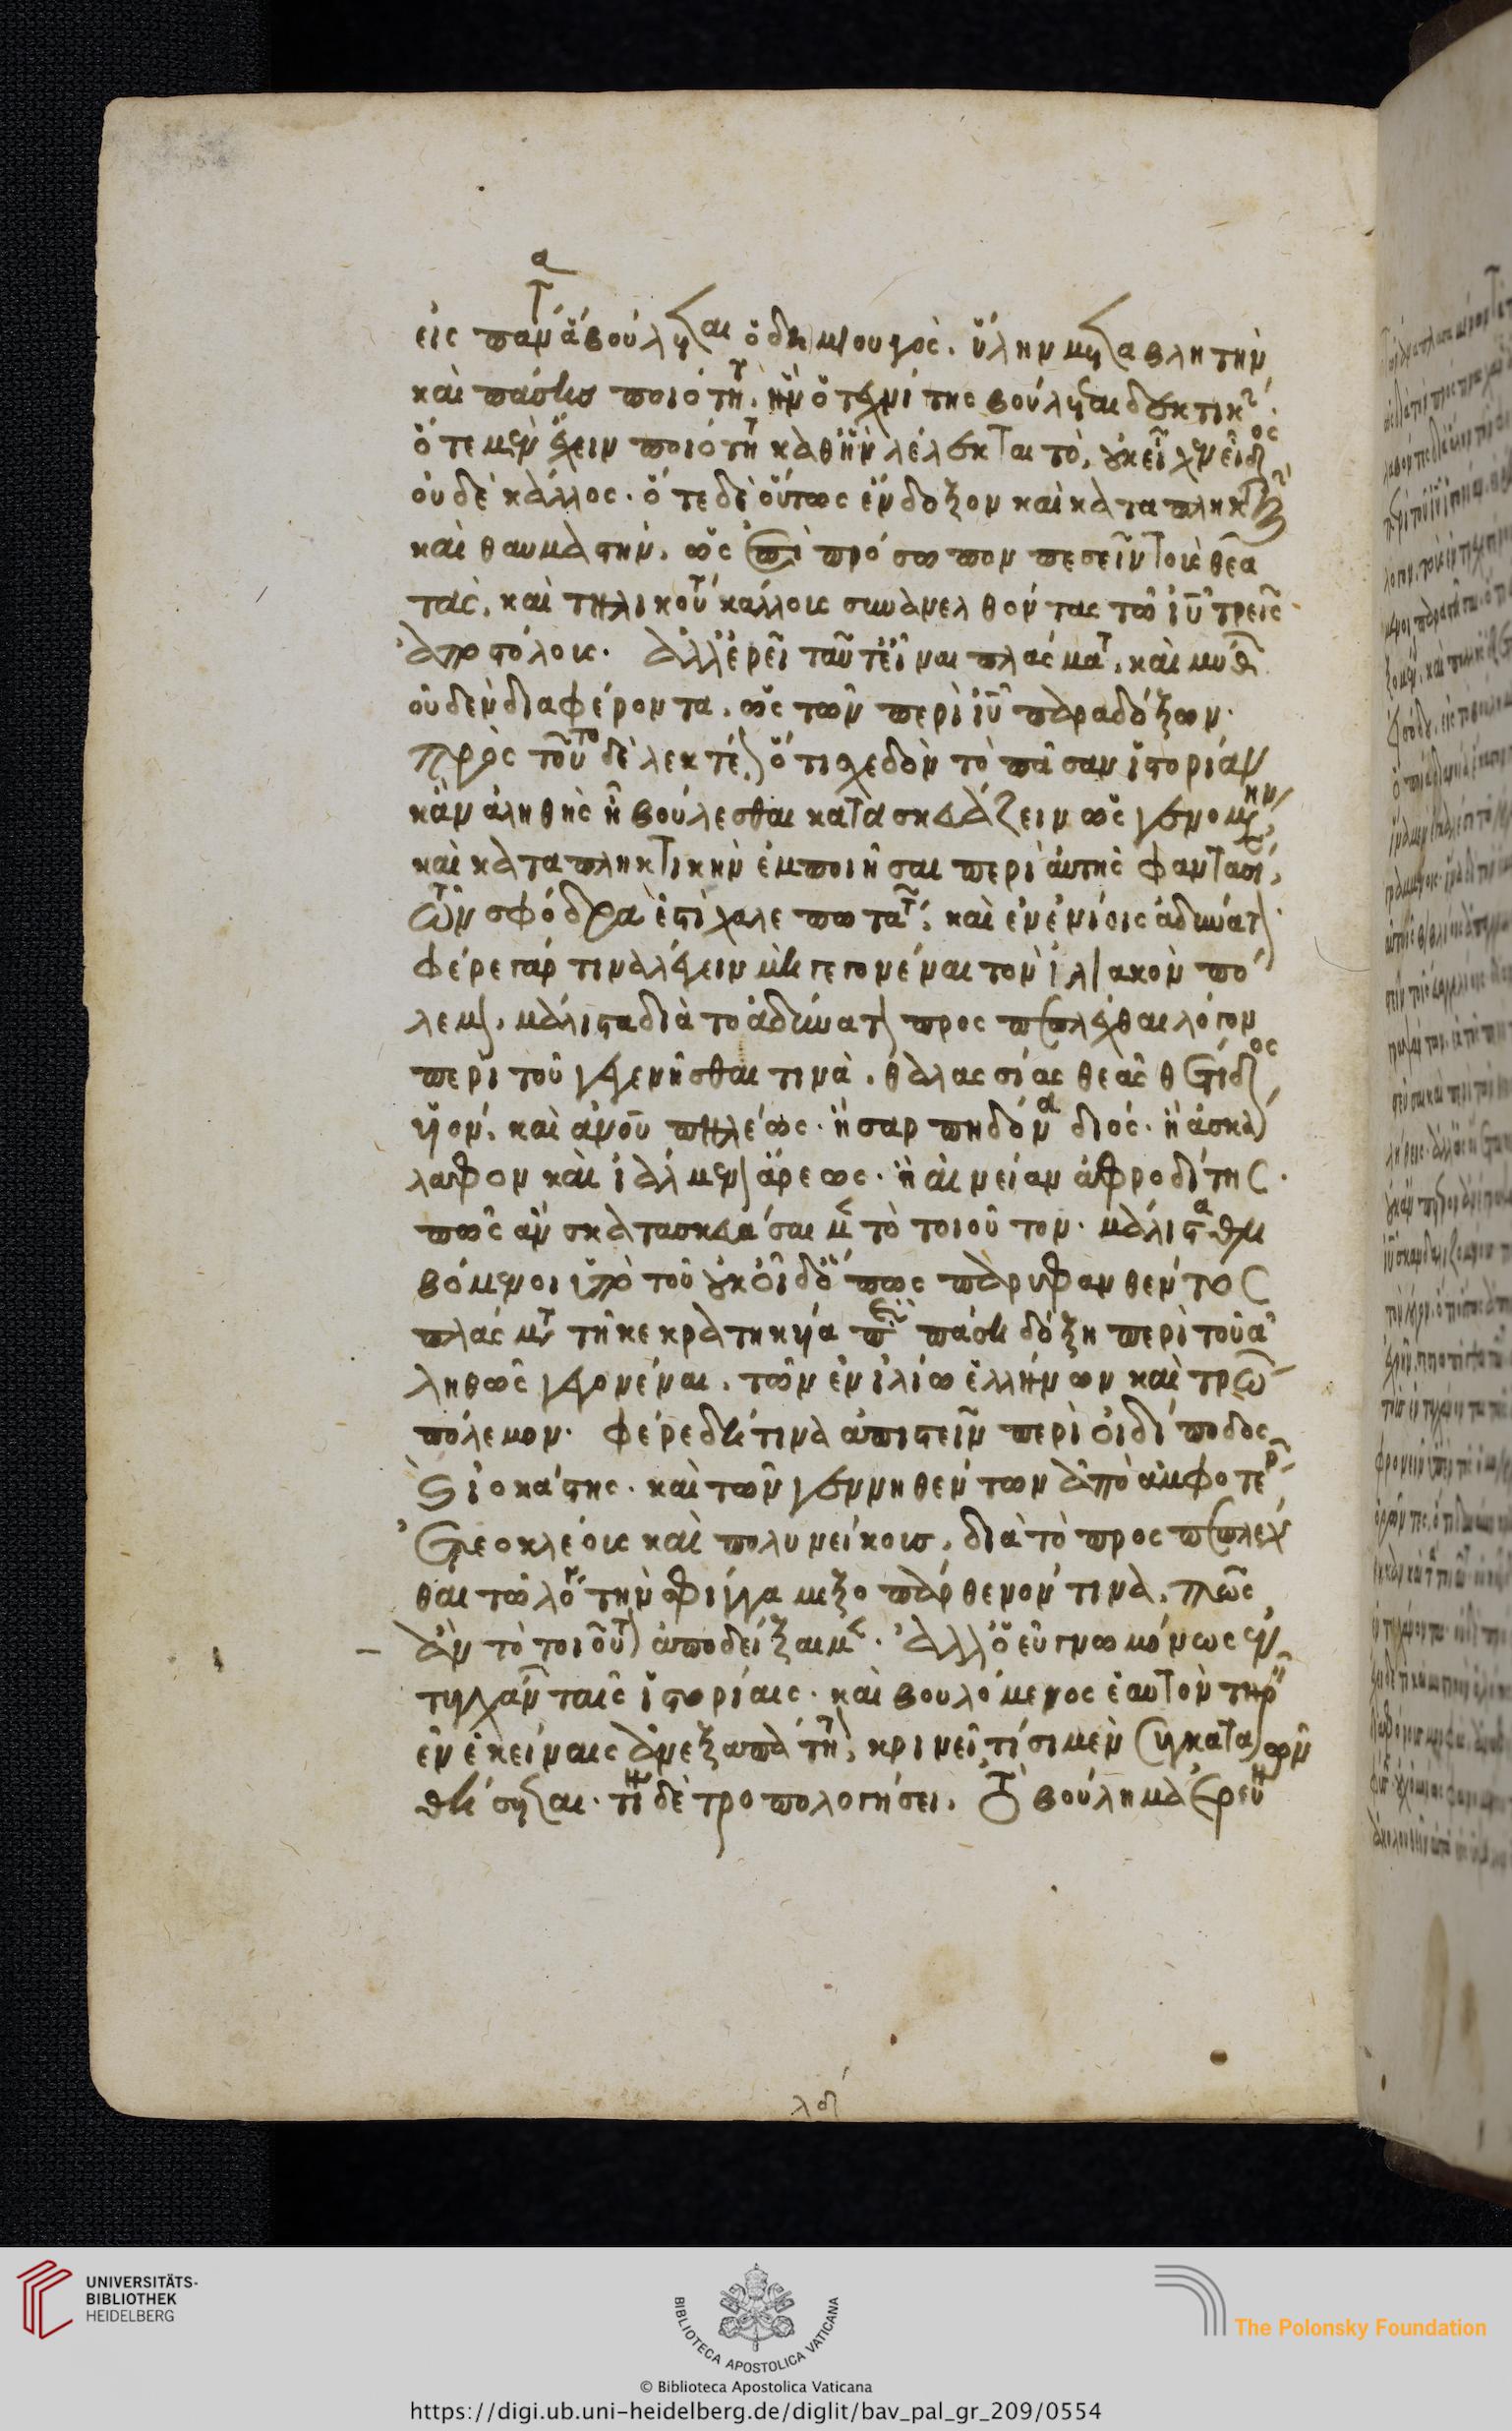 εἰς πάνθ' ἃ βούλεται ὁ δημιουργὸς, ὕλην μεταβλητὴν
καὶ πάσης ποιότητος, ἣν ὁ τεχνίτης βούλεται δεκτικήν.
ὁτὲ μὲν ἔχειν ποιότητα καθ' ἣν λέλεκται τὸ, οὐκ εἶχεν εἶδος
οὐδὲ κάλλος. ὁτὲ δὲ οὕτως ἔνδοξον καὶ καταπληκτικὴν
καὶ θαυμαστὴν, ὡς ἐπὶ πρόσωπον πεσεῖν τοὺς θεα
τὰς, καὶ τηλικούτου κάλλους συνανελθόντας τῷ ἰῦ τρεῖς
ἀποστόλους. ἀλλ' ἐρεῖ ταῦτ' εἶναι πλάσματα, καὶ μύθων
οὐδὲν διαφέροντα, ὡς τῶν περὶ ἰῦ παραδόξων.
Πρὸς τοῦτο δὲ λεκτέον ὅτι σχεδὸν τὸ πᾶσαν ἱστορίαν
κἂν ἀληθὴς ᾖ βούλεσθαι κατασκευάζειν ὡς γεγενημένην,
καὶ καταπληκτικὴν ἐμποιῆσαι περὶ αὐτῆς φαντασίαν,
τῶν σφόδρα ἐστὶ χαλεπωτάτων, καὶ ἐν ἐνίοις ἀδύνατον.
Φέρε γάρ τινα λέγειν μὴ γεγονέναι τὸν ἰλιακὸν πό
λεμον, μάλιστα διὰ τὸ ἀδύνατον προσπεπλέχθαι λόγον
περὶ τοῦ γεγενῆσθαι τινὰ, θαλασσίας θεᾶς θέτιδος
υἱὸν, καὶ ἀνοῦ πηλέως. ἢ σαρπηδόνα διός. ἢ ἀσκά
λαφον καὶ ἰάλμενον ἄρεως. ἢ αἰνείαν ἀφροδίτης.
πῶς ἂν κατασκευάσαιμεν τὸ τοιοῦτον. μάλιστα θλι
βόμενοι ὑπὸ τοῦ οὐκ οἶδ' ὅπως παρυφανθέντος
πλάσματος τῇ κεκρατηκυίᾳ παρὰ πᾶσι δόξῃ περὶ τοῦ ἀ
ληθῶς γεγονέναι, τῶν ἐν ἰλίῳ ἑλλήνων καὶ τρώων
πόλεμον. Φέρε δὲ τινὰ ἀπιστεῖν περὶ οἰδίποδος
καὶ ἰοκάστης. καὶ τῶν γεννηθέντων ἀπὸ ἀμφοτέρων
ἐτεοκλέους καὶ πολυνείκους, διὰ τὸ προσπεπλέχ
θαι τῷ λόγῳ τὴν σφίγγα μιξοπάρθενόν τινα. πῶς
ἂν τὸ τοιοῦτον ἀποδείξαιμεν. ἀλλ' ὁ εὐγνωμόνως ἐν
τυγχάνων ταῖς ἱστορίαις. καὶ βουλόμενος ἑαυτὸν τηρεῖν
ἐν ἐκείναις ἀνεξαπάτητον, κρινεῖ τίσι μὲν συγκατα
θήσεται. τίνα δὲ τροπολογήσει. τὸ βούλημα ἐρευνῶν
λδ
UNIVERSITÄTS-
BIBLIOTHEK
HEIDELBERG
BIBLIOTECA APOSTOLICA VATICANA
© Biblioteca Apostolica Vaticana
The Polonsky Foundation
https://digi.ub.uni-heidelberg.de/diglit/bav_pal_gr_209/0554